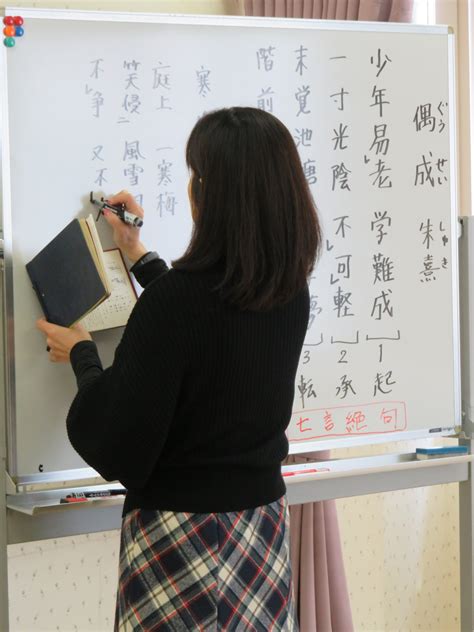 偶成 朱熹
ぐう せい しゅ き
少年易レ老学難成 1 起
一寸光陰不レ可レ軽 2 承
未覚池塘 夢 3 転
階前
七言絶句
寒
庭上一寒梅
笑侵二風雪
不レ争又不